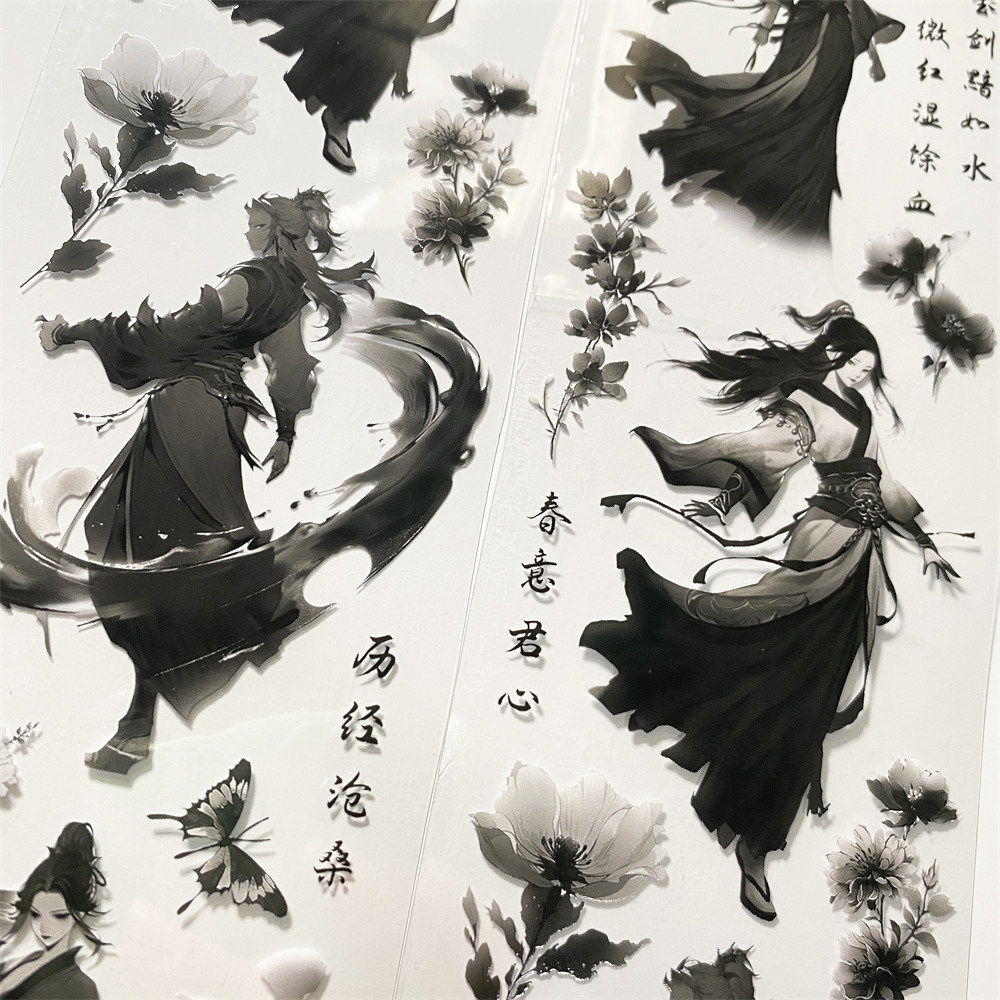 剑黯如水
微红湿馀血
春意君心
历经沧桑